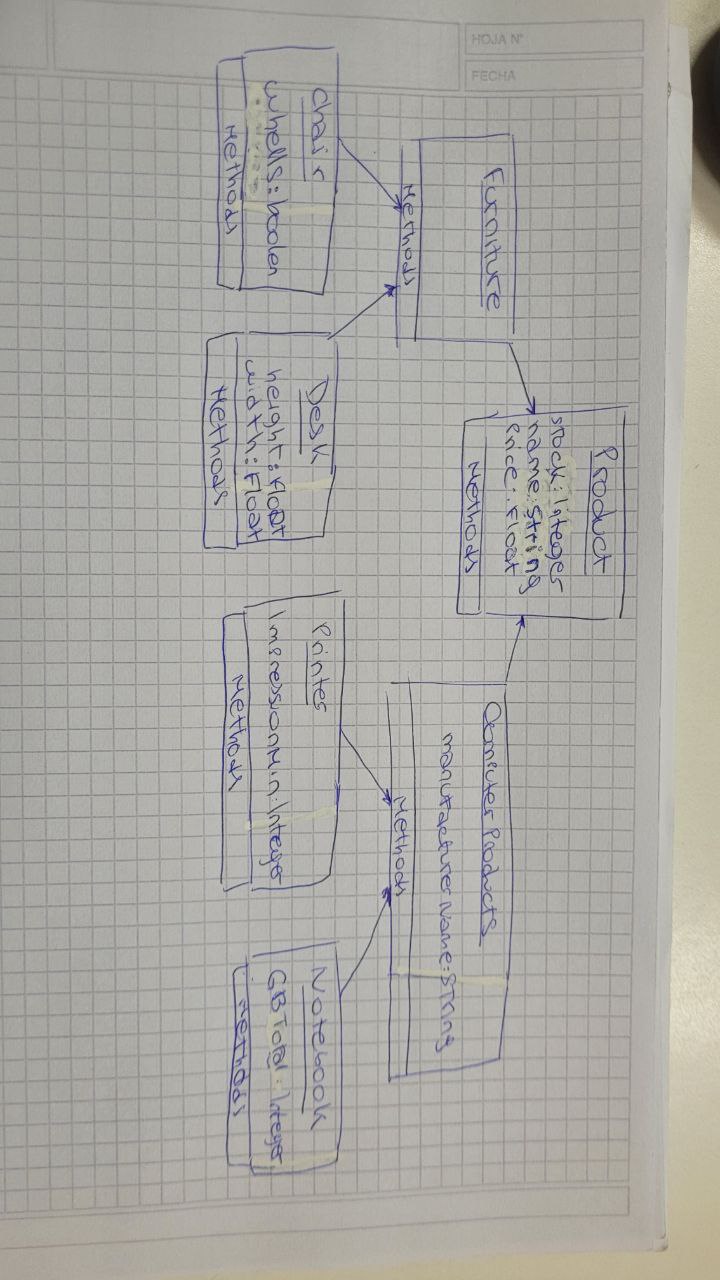 HOJA N°
FECHA
Product
stock: Integer
name: String
Price: Float
Methods
Furniture
Methods
Computer Products
manufacturerName: STring
Methods
Chair
whells: boolen
Methods
Desk
height: Float
width: Float
Methods
Printer
ImpressionMin: Integer
Methods
Notebook
GBTotal: Integer
Methods